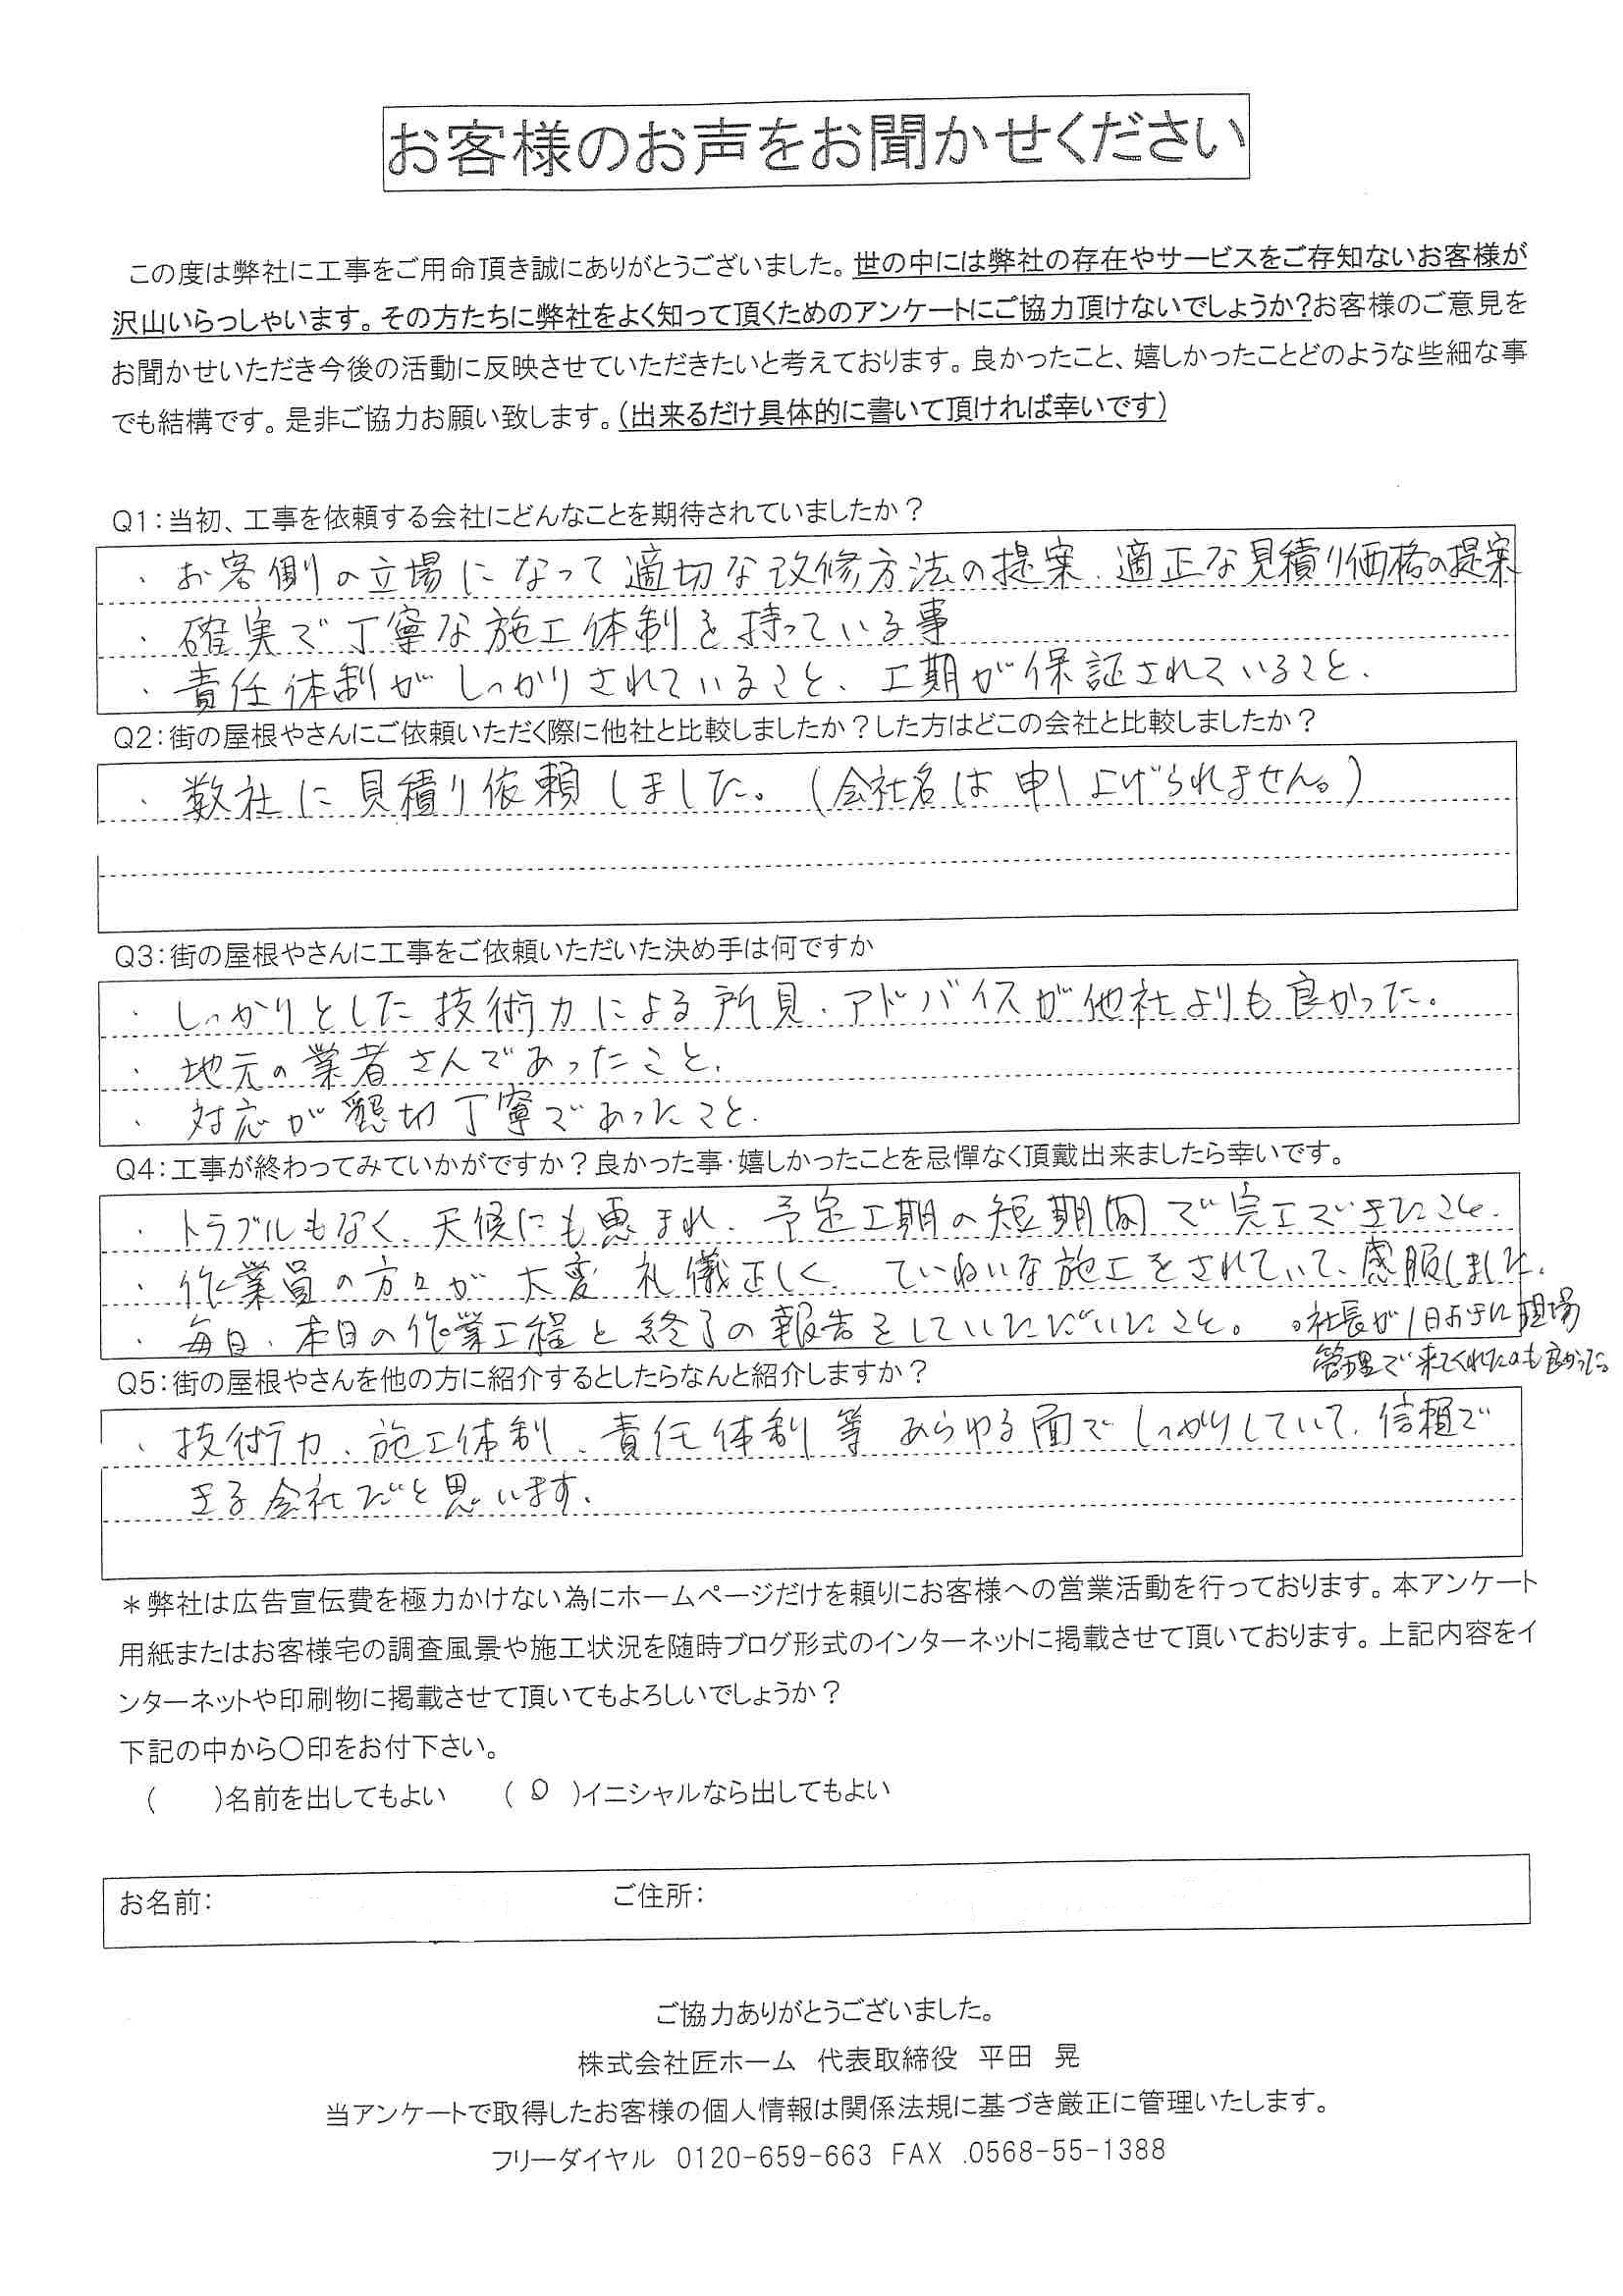 お客様のお声をお聞かせください
この度は弊社に工事をご用命頂き誠にありがとうございました。世の中には弊社の存在やサービスをご存知ないお客様が
沢山いらっしゃいます。その方たちに弊社をよく知って頂くためのアンケートにご協力頂けないでしょうか?お客様のご意見を
お聞かせいただき今後の活動に反映させていただきたいと考えております。良かったこと、嬉しかったことどのような些細な事
でも結構です。是非ご協力お願い致します。(出来るだけ具体的に書いて頂ければ幸いです)
Q1:当初、工事を依頼する会社にどんなことを期待されていましたか?
・お客側の立場になって適切な改修方法の提案、適正な見積り価格の提案
・確実で丁寧な施工体制を持っている事
・責任体制がしっかりされていること、工期が保証されていること.
Q2:街の屋根やさんにご依頼いただく際に他社と比較しましたか?した方はどこの会社と比較しましたか?
・数社に見積り依頼しました。(会社名は申し上げられません。)
Q3:街の屋根やさんに工事をご依頼いただいた決め手は何ですか
・しっかりとした技術力による所見、アドバイスが他社よりも良かった。
・地元の業者さんであったこと.
・対応が懇切丁寧であったこと.
Q4:工事が終わってみていかがですか?良かった事・嬉しかったことを忌憚なく頂戴出来ましたら幸いです。
・トラブルもなく、天候にも恵まれ、予定工期の短期間で完工できたこと.
・作業員の方々が大変礼儀正しく、ていねいな施工をされていて、感服しました.
・毎日、本日の作業工程と終了の報告をしていただいたこと。。社長が1日おきに現場
管理で来てくれたのも良かった。
Q5:街の屋根やさんを他の方に紹介するとしたらなんと紹介しますか?
・技術力、施工体制、責任体制等あらゆる面でしっかりしていて、信頼で
きる会社だと思います.
*弊社は広告宣伝費を極力かけない為にホームページだけを頼りにお客様への営業活動を行っております。本アンケート
用紙またはお客様宅の調査風景や施工状況を随時ブログ形式のインターネットに掲載させて頂いております。上記内容をイ
ンターネットや印刷物に掲載させて頂いてもよろしいでしょうか?
下記の中から〇印をお付下さい。
( )名前を出してもよい (〇)イニシャルなら出してもよい
お名前: ご住所:
ご協力ありがとうございました。
株式会社匠ホーム 代表取締役 平田 晃
当アンケートで取得したお客様の個人情報は関係法規に基づき厳正に管理いたします。
フリーダイヤル 0120-659-663 FAX .0568-55-1388